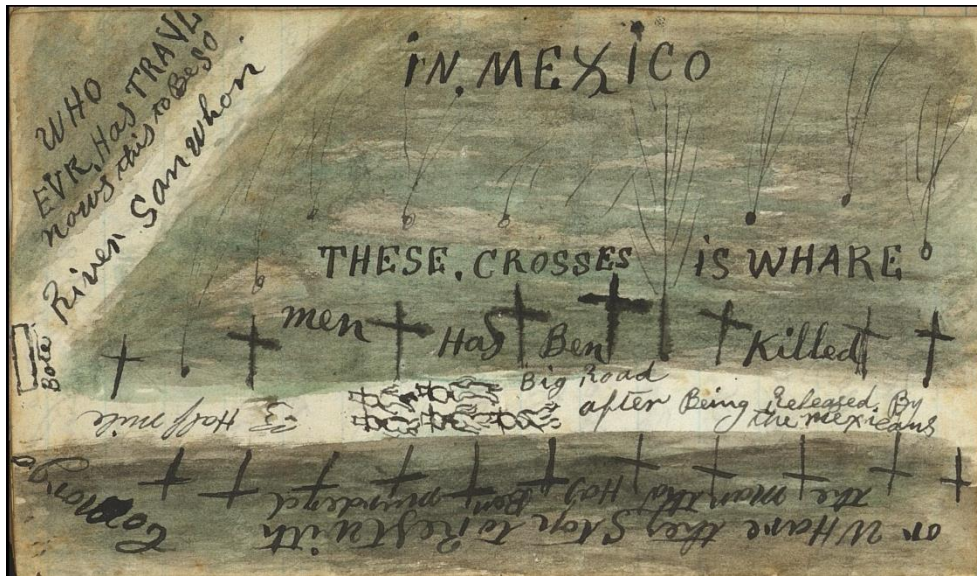 WHO
EVR, HAS TRAVL
nows this to Be SO
River Sanwhon
iN, MEXiCO
THESE, CROSSES iS WHARE
men Has Ben Killed
Bote
Big Road
after Being Released, By
the mexicans
Half mile
or WHare they Stop to Rest with
the man tha Has Ben murderd